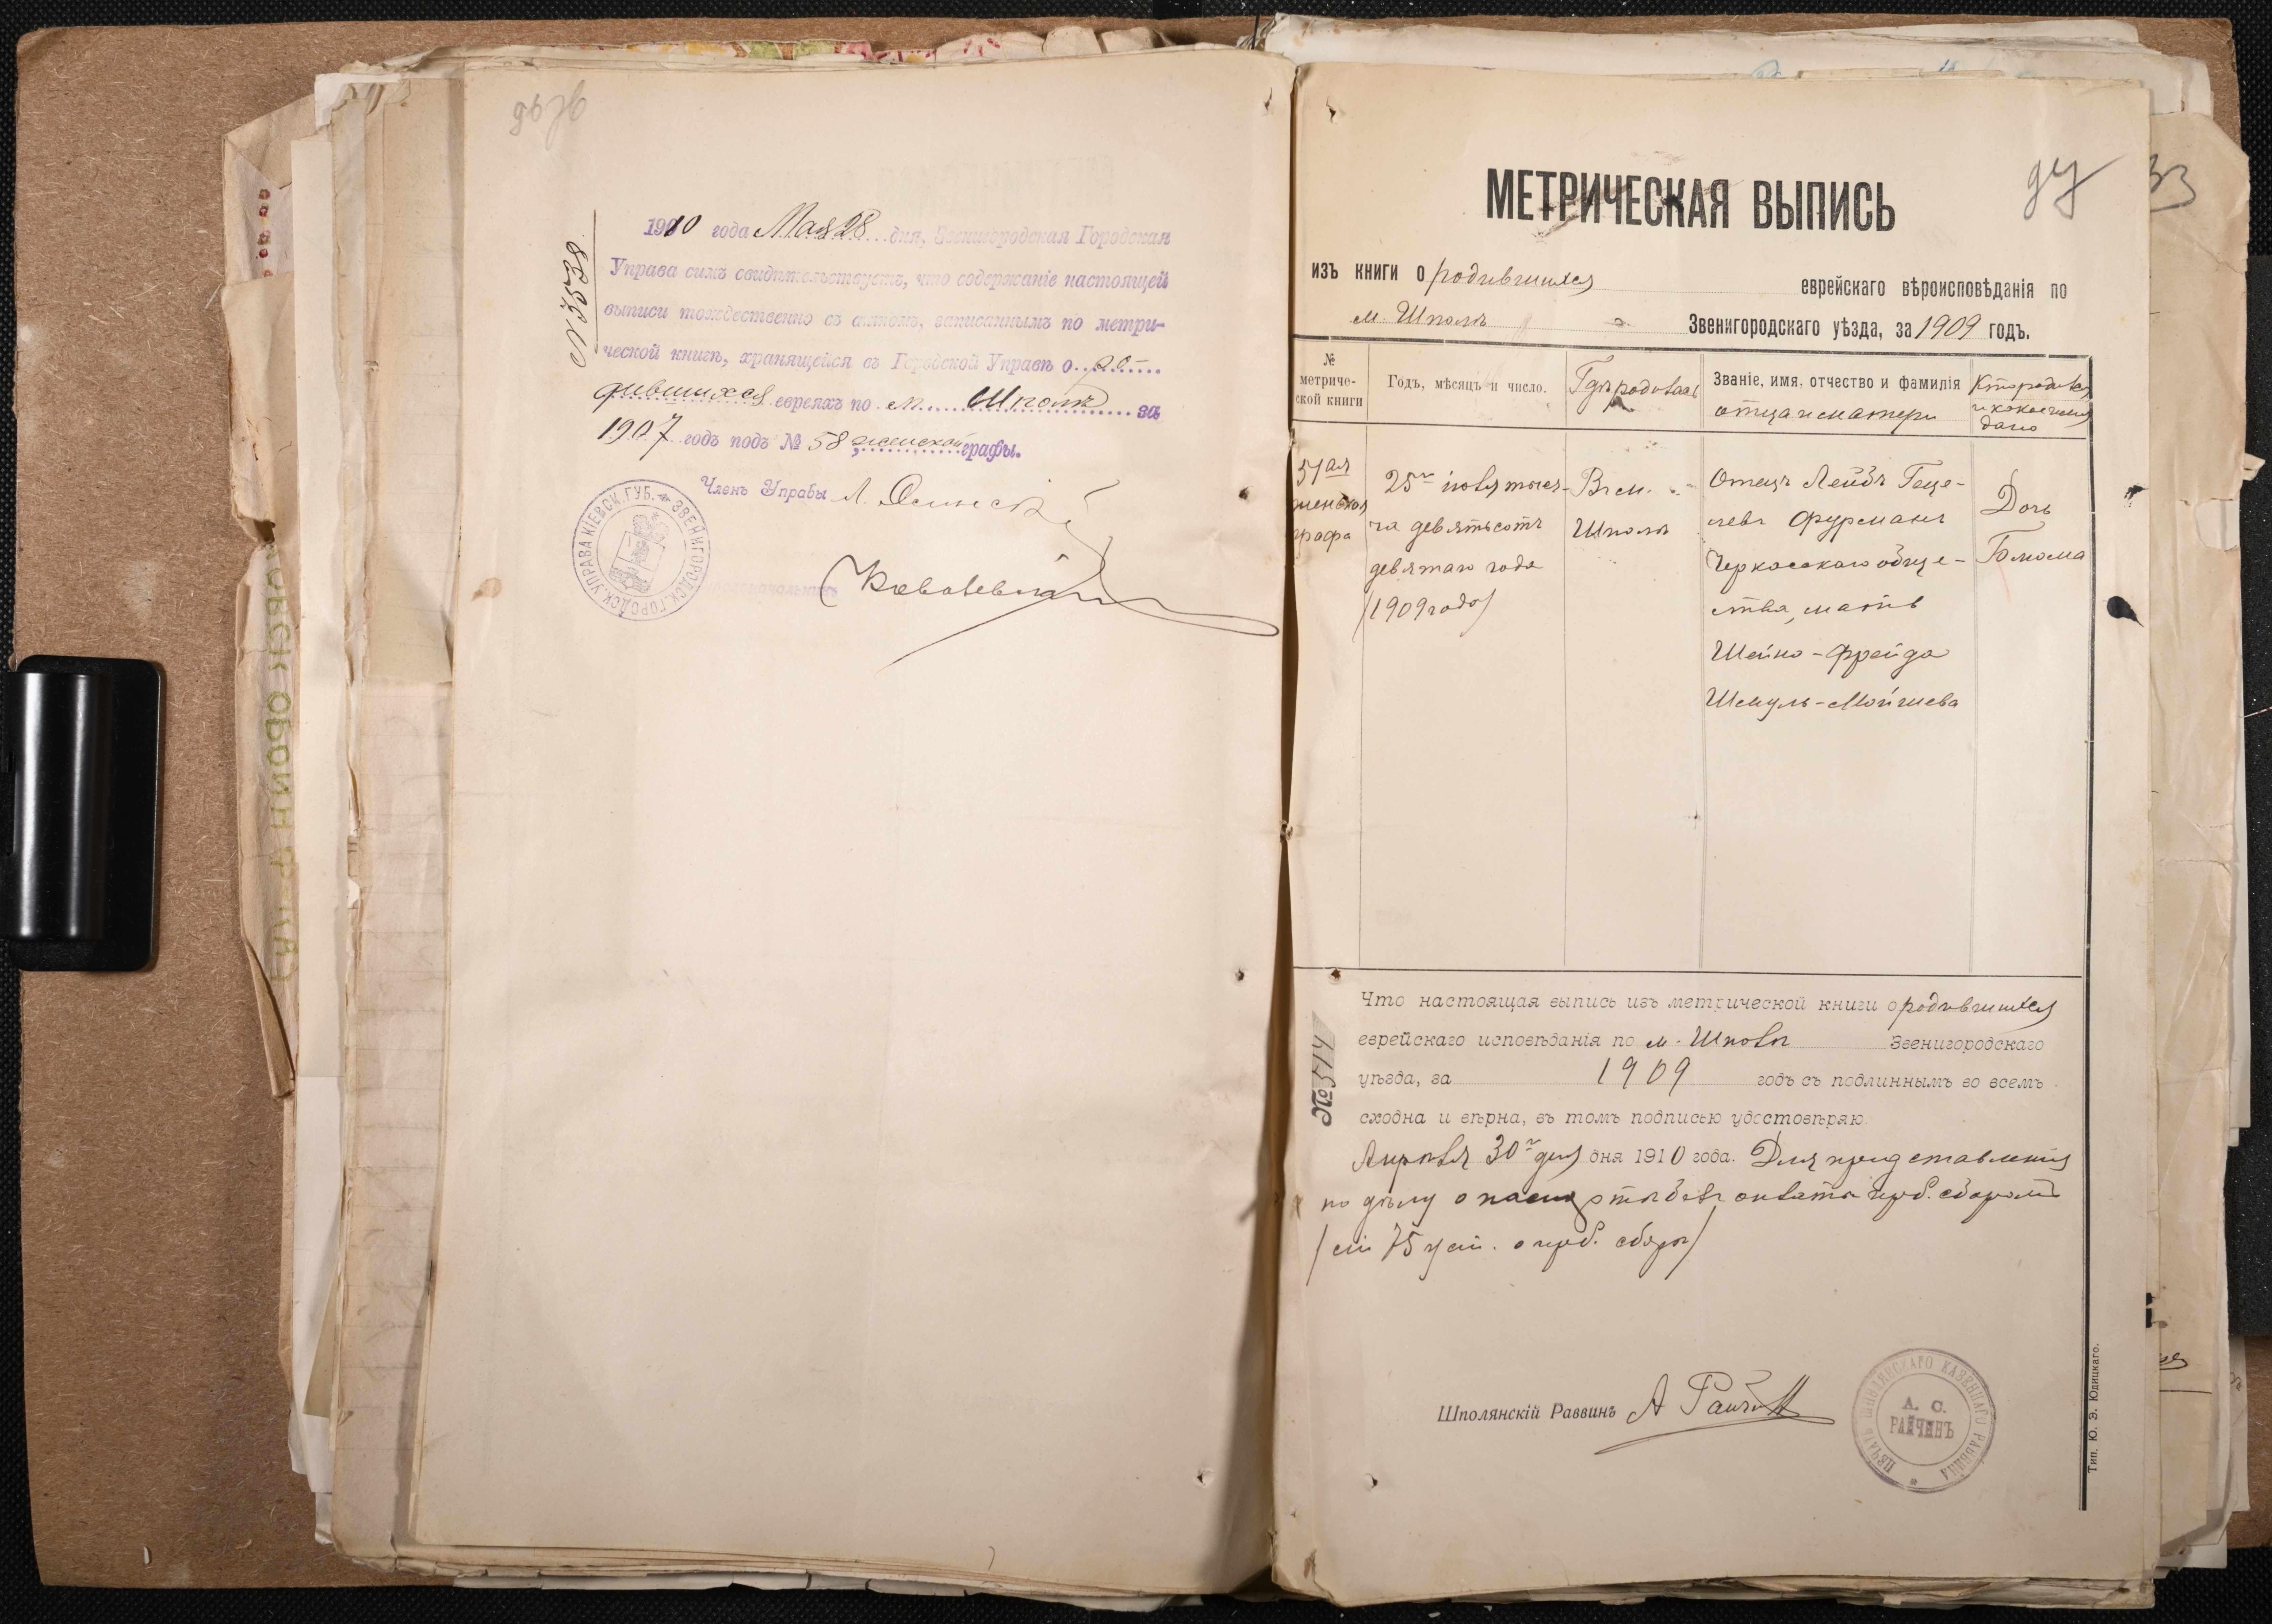 № 3538
1910 года Мая 28 дня, Звенигородская Городская
Управа симъ свидѣтельствуетъ, что содержаніе настоящей
выписи тождественно съ актомъ, записаннымъ по метри-
ческой книгѣ, хранящейся въ Городской Управѣ о ро-
дившихся евреяхъ по м. Шполѣ за
1907 годъ подъ № 58 женской графы.
Членъ Управы
ЗВЕНИГОРОДСК. ГОРОДСК. УПРАВА КІЕВСК. ГУБ.
МЕТРИЧЕСКАЯ ВЫПИСЬ
33
изъ книги о родившихся еврейскаго вѣроисповѣданія по
м. Шполѣ Звенигородскаго уѣзда, за 1909 годъ.
№ метриче-ской книги
Годъ, мѣсяцъ и число.
Гдѣ родился
Званіе, имя, отчество и фамилія отца и матери
Кто родился и какое имя дано
57ая
женская
графа
25го іюля тыся-
ча девятьсотъ
девятаго года
/1909 года/
Въ м.
Шполѣ
Отецъ Лейбъ Геце-
левъ Фурманъ
Черкасскаго обще-
ства, мать
Шейна-Фрейда
Шмуль-Мойшева
Дочь
№ 514
Что настоящая выпись изъ метрической книги о родившихся
еврейскаго исповѣданія по м. Шполы Звенигородскаго
уѣзда, за 1909 годъ съ подлиннымъ во всемъ
сходна и вѣрна, въ томъ подписью удостовѣряю.
Апрѣля 30го дня дня 1910 года. Для представленія
по дѣлу о
/ст 75 уст. о герб. сборѣ/
Шполянскій Раввинъ А Райчинъ
ПЕЧАТЬ ШПОЛЯНСКАГО КАЗЕННАГО РАВВИНА
А. С.
РАЙЧИНЪ
Тип. Ю. Э. Юдицкаго.